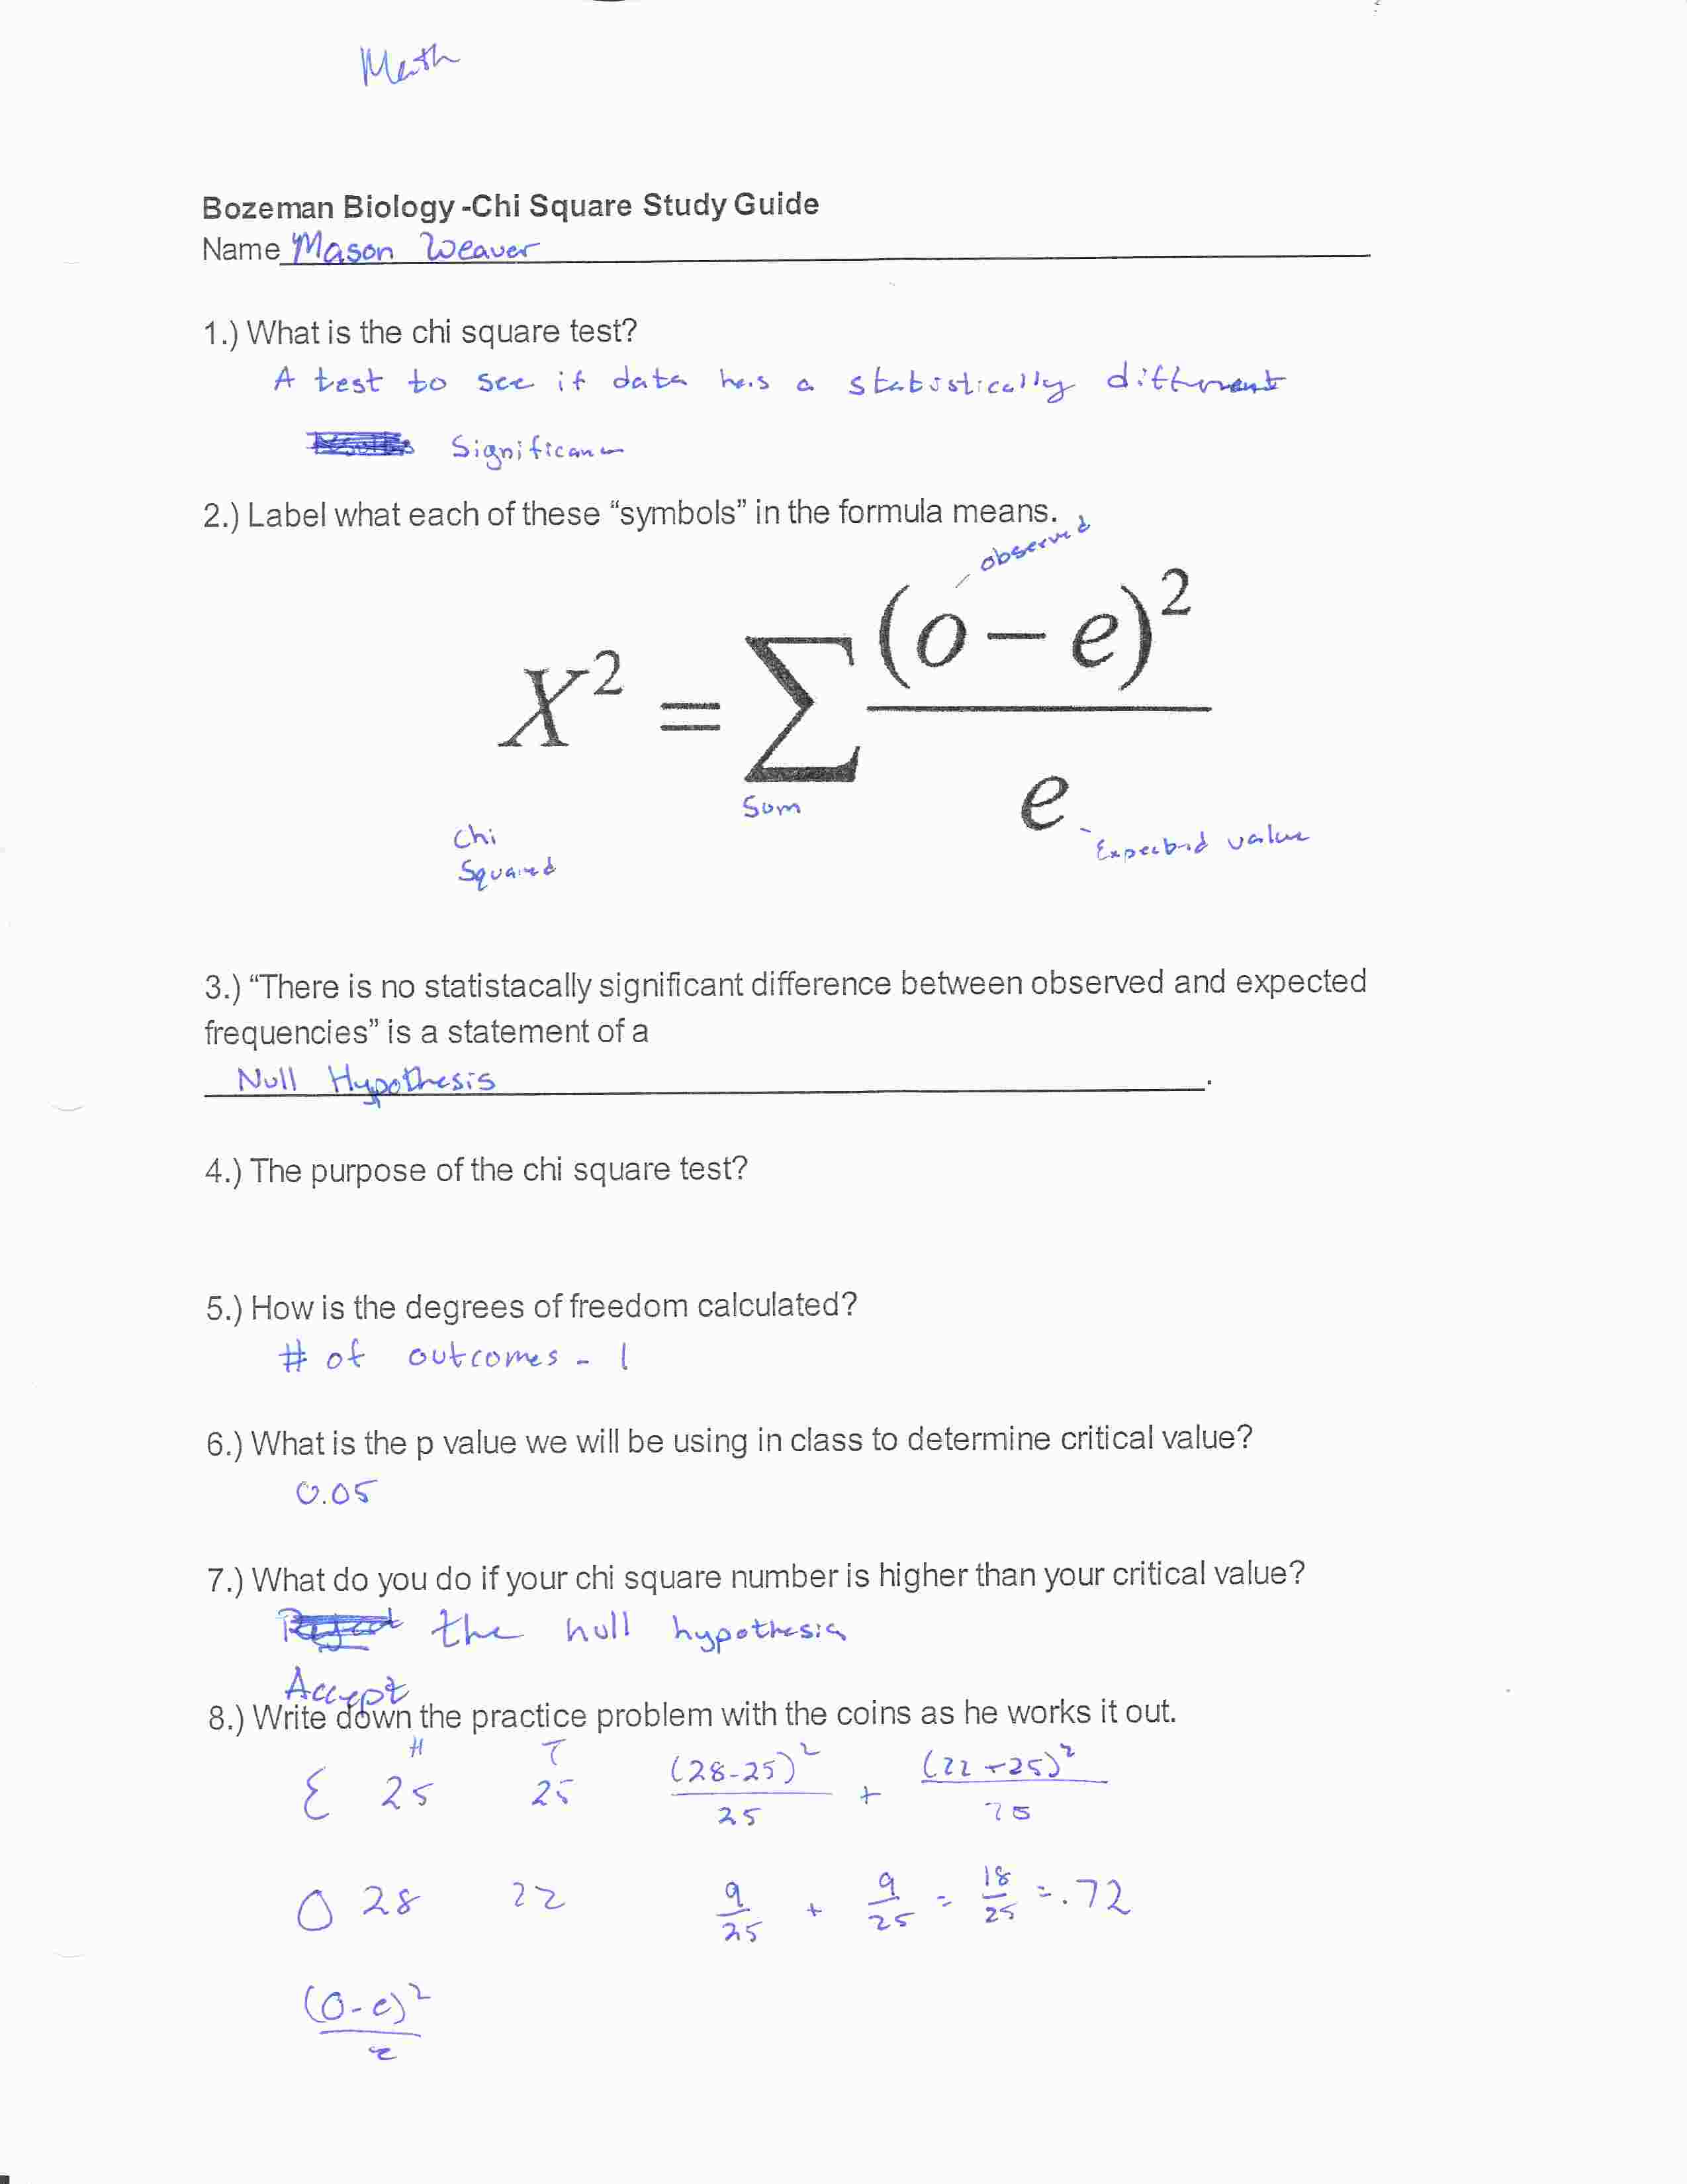 Math
Bozeman Biology -Chi Square Study Guide
Name Mason Weaver
1.) What is the chi square test?
A test to see if data has a statistically different
Significance
2.) Label what each of these “symbols” in the formula means.
observed
X² = ∑ (o – e)² / e
Sum
Chi
Squared
Expected value
3.) “There is no statistacally significant difference between observed and expected
frequencies” is a statement of a
Null Hypothesis.
4.) The purpose of the chi square test?
5.) How is the degrees of freedom calculated?
# of outcomes - 1
6.) What is the p value we will be using in class to determine critical value?
0.05
7.) What do you do if your chi square number is higher than your critical value?
Reject the null hypothesis
Accept
8.) Write down the practice problem with the coins as he works it out.
H T
E 25 25 (28-25)² / 25 + (22-25)² / 25
O 28 22 9/25 + 9/25 = 18/25 = .72
(O-e)² / e